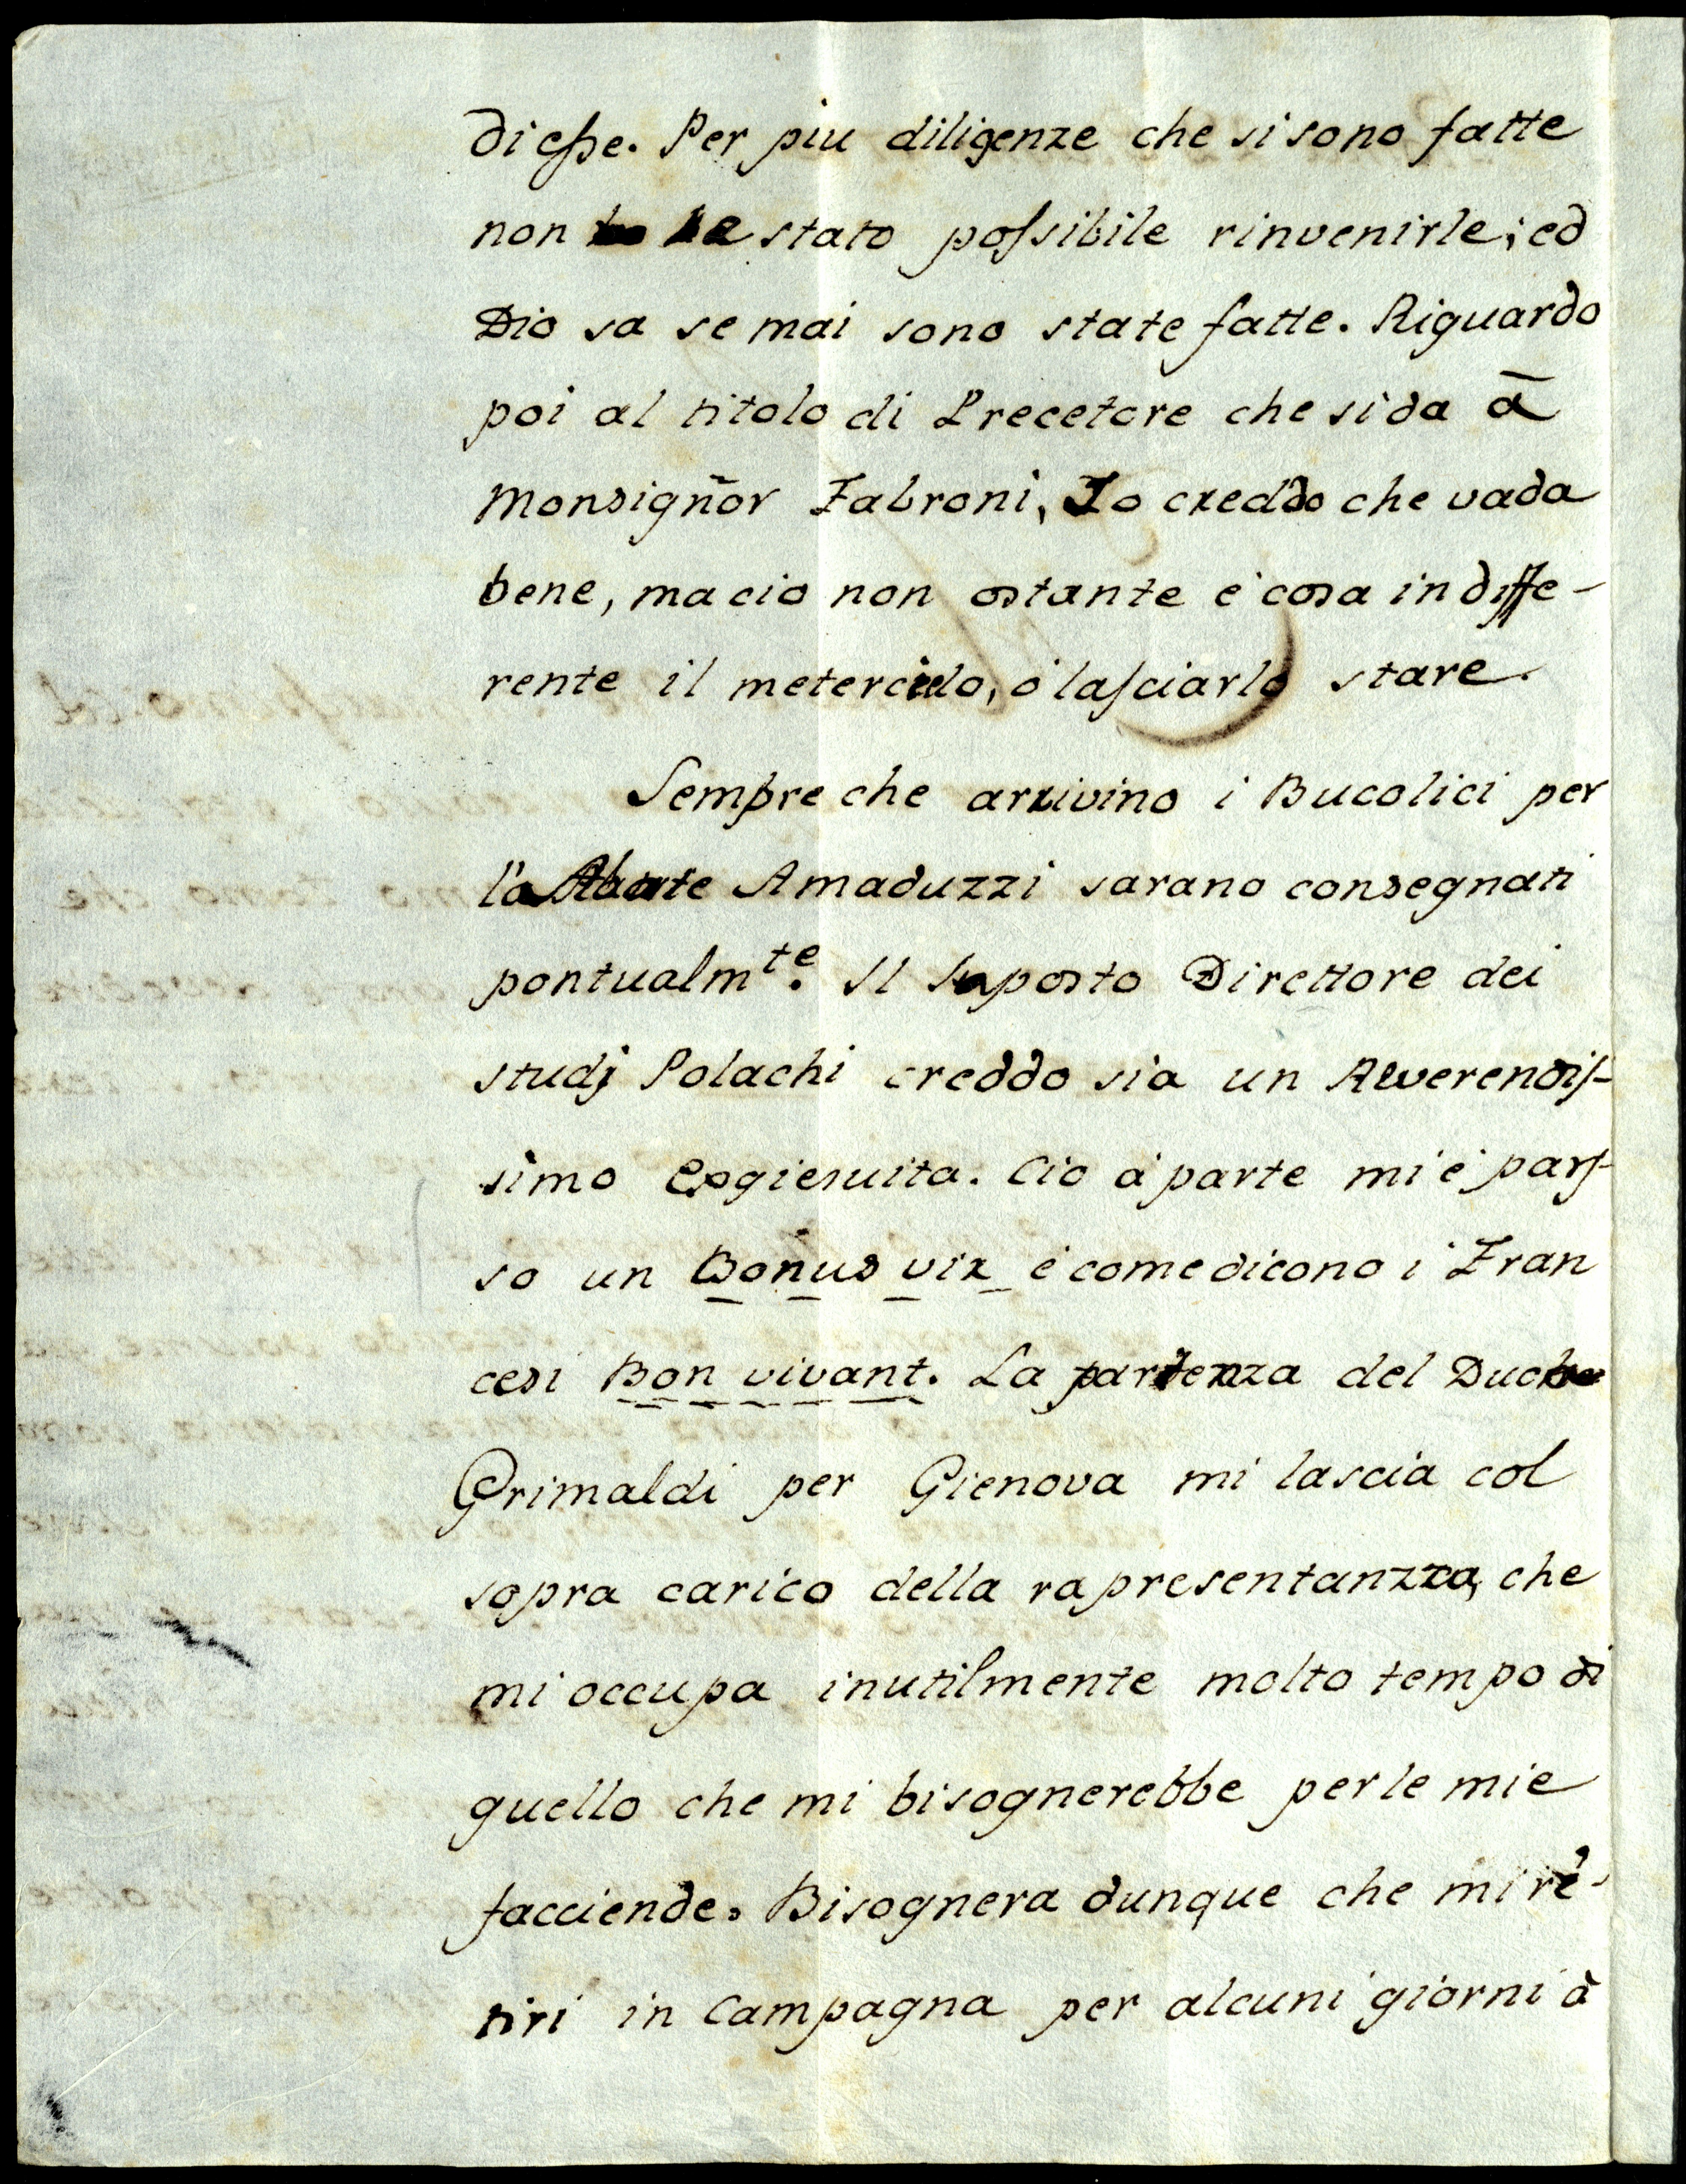 di esse. Per piu diligenze che si sono fatte
non stato possibile rinvenirle; ed
Dio sa se mai sono state fatte. Riguardo
poi al titolo di Precetore che si da ā
Monsign̄or Fabroni, Io creddo che vada
bene, ma cio non ostante é cosa indiffe-
rente il metercielo, ó lasciarlo stare.
Sempre che arrivino i Bucolici per
l'Abate Amaduzzi sarano consegnati
pontualmte. Il suposto Direttore dei
studj Polachi creddo sia un Reverendis-
simo Exgiesuita. Cio á parte mi é pars-
so un Bonus vir é come dicono i Fran
cesi Bon vivant. La partenza del Duche
Grimaldi per Gienova mi lascia col
sopra carico della rapresentanzza, che
mi occupa inutilmente molto tempo di
quello che mi bisognerebbe per le mie
facciende. Bisognera dunque che mi ré-
tiri in Campagna per alcuni giorni à